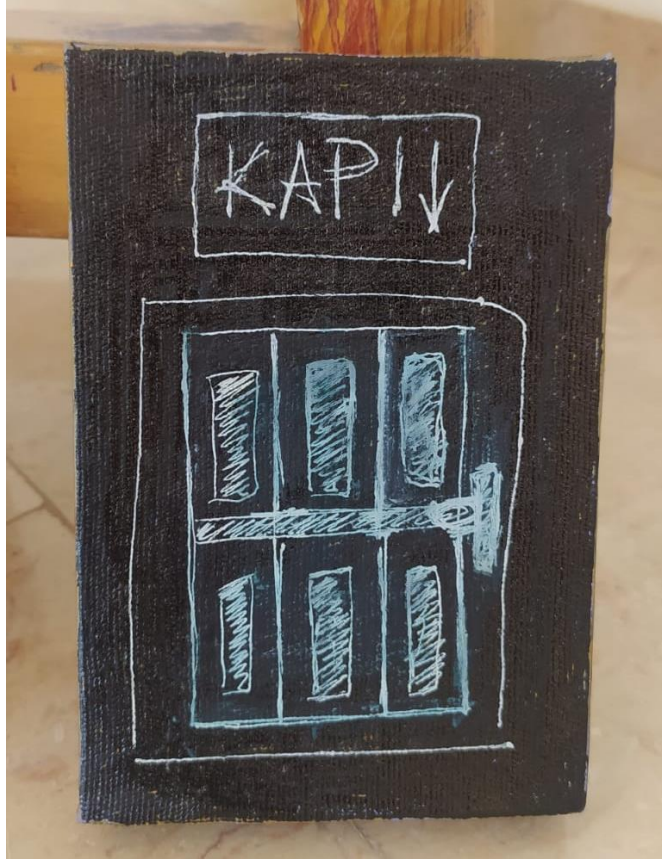 KAPI↓